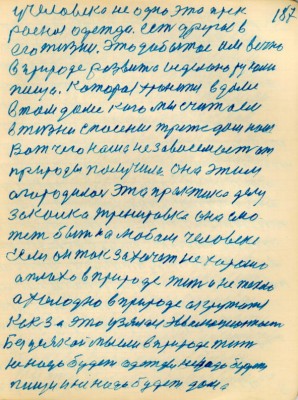 187
Человека не одно это прек
расная одежда. Есть другое в
его жизни. Это забытое им вечно
в природе развить и сделано руками
пища. Которая хранится в доме
в том доме кого мы считаем
в жизни спасением третье дом нам
Вот чего наша независимость от
природы получила она этим
огородилась эта практика делу
закалка тренировка она смо
жет быть на любом человеке
Если он так захочет не хорошо
а плохо в природе жить не тепло
а холодно в природе окружать
Как за это взялась Эволюционность
Без всякой мысли в природе жить
не надо будет одежда не надо будет
пищи и не надо будет дома